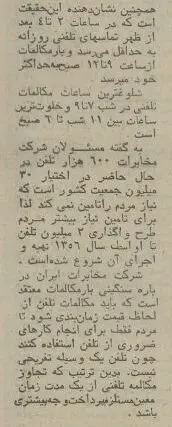 همچنین نشان‌دهنده این‌حقیقت
است که در ساعات ۲ تا ۴ بعد
از ظهر تماسهای تلفنی روزانه
به حداقل می‌رسد و بارمکالمات
از ساعت ۹ تا ۱۲ صبح به‌حداکثر
خود میرسد.
شلوغترین ساعات مکالمات
تلفنی در شب ۷ تا ۹ و خلوت‌ترین
ساعات بین ۱۱ شب تا ۶ صبح
است.
به گفته مسئولان شرکت
مخابرات ۶۰۰ هزار تلفن در
حال حاضر در اختیار ۳۰
میلیون جمعیت کشور است که
نیاز مردم را تامین نمی کند لذا
برای تامین نیاز بیشتر مردم
طرح واگذاری ۲ میلیون تلفن
تا اواسط سال ۱۳۵۶ تهیه و
اجرای آن شروع شده‌است.
شرکت مخابرات ایران در
باره سنگینی بارمکالمات معتقد
است که باید مکالمات تلفن از
لحاظ قیمت زمان‌بندی شود تا
مردم فقط برای انجام کارهای
ضروری از تلفن استفاده کنند
چون تلفن یک وسیله تفریحی
نیست. بدین ترتیب که تجاوز
مکالمه تلفنی از یک مدت زمان
معین مستلزم پرداخت وجه بیشتری
باشد.